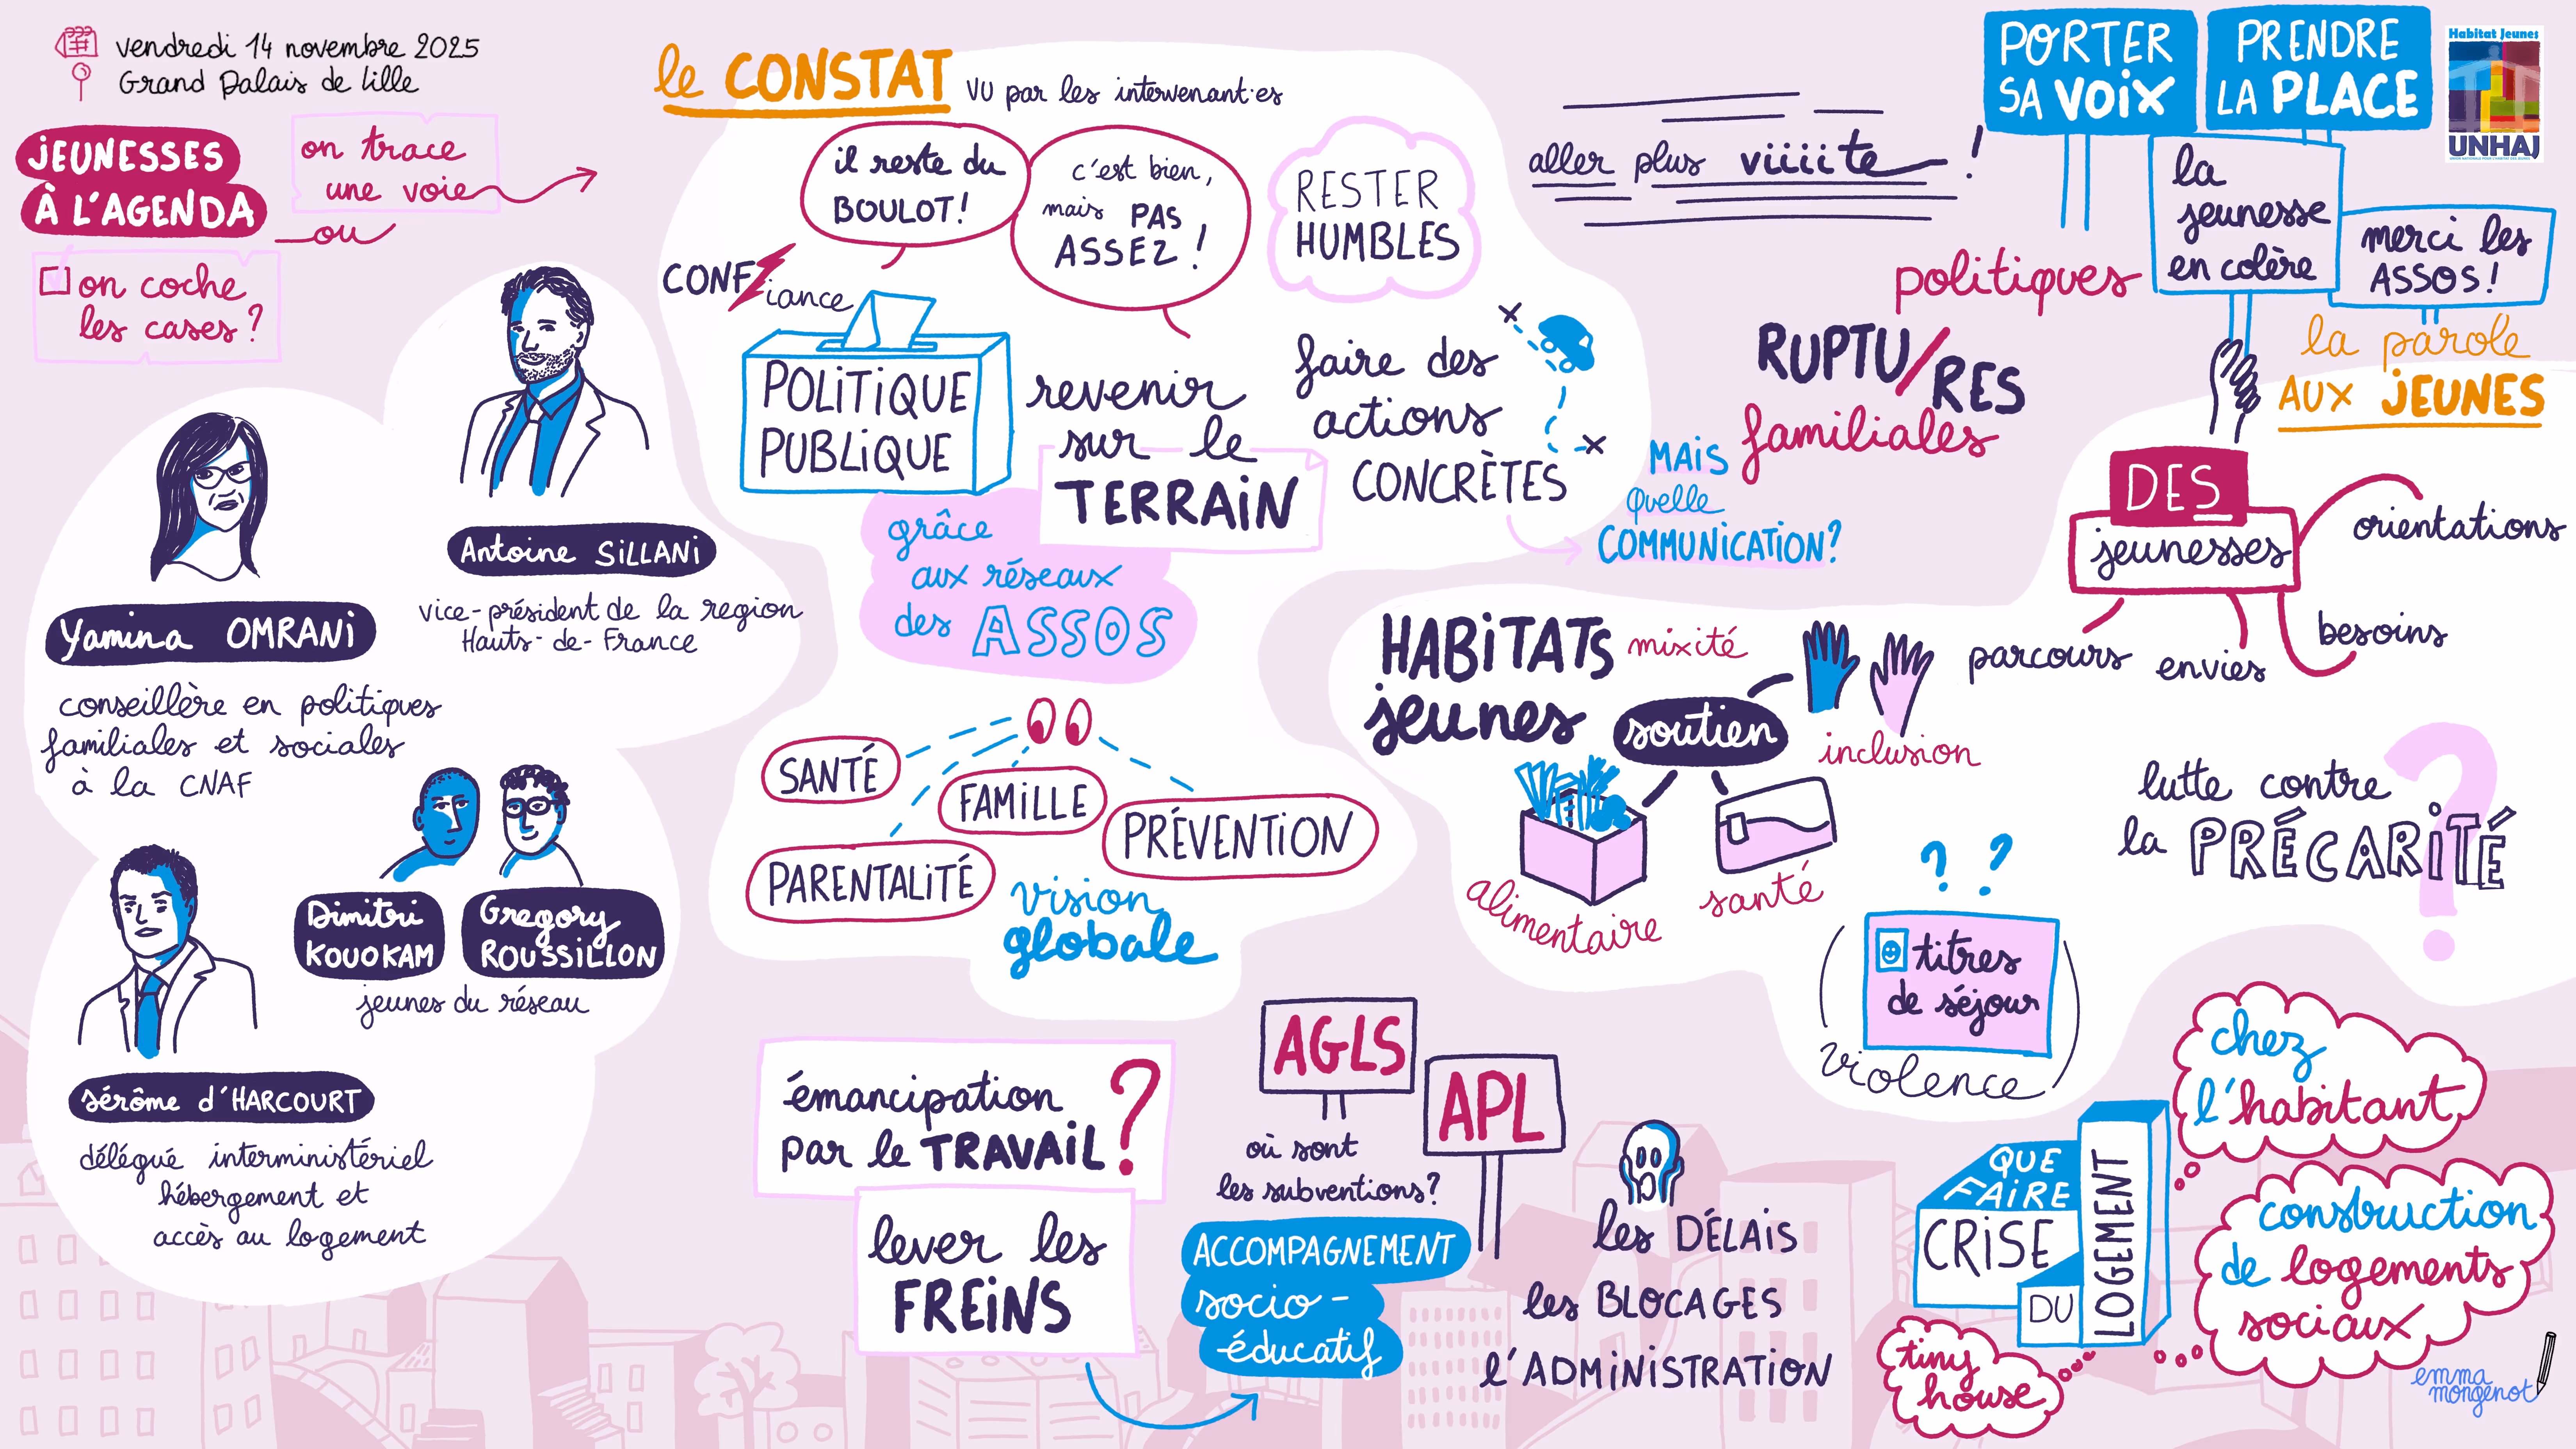 vendredi 14 novembre 2025
Grand Palais de Lille
JEUNESSES
À L'AGENDA
on trace
une voie
ou
on coche
les cases ?
Antoine SILLANI
vice-président de la region
Hauts-de-France
Yamina OMRANI
conseillère en politiques
familiales et sociales
à la CNAF
Dimitri
KOUOKAM
Gregory
ROUSSILLON
jeunes du réseau
Jérôme d'HARCOURT
délégué interministériel
hébergement et
accès au logement
le CONSTAT vu par les intervenant·es
il reste du
BOULOT !
c'est bien,
mais PAS
ASSEZ !
RESTER
HUMBLES
CONF
iance
POLITIQUE
PUBLIQUE
revenir
sur le
TERRAIN
grâce
aux réseaux
des ASSOS
faire des
actions
CONCRÈTES
MAIS
quelle
COMMUNICATION ?
SANTÉ
FAMILLE
PRÉVENTION
PARENTALITÉ
vision
globale
émancipation
par le TRAVAIL ?
lever les
FREINS
AGLS
APL
où sont
les subventions ?
ACCOMPAGNEMENT
socio-
éducatif
les DÉLAIS
les BLOCAGES
l'ADMINISTRATION
aller plus viiiite !
PORTER
SA VOIX
PRENDRE
LA PLACE
Habitat Jeunes
UNHAJ
la
jeunesse
en colère
merci les
ASSOS !
la parole
AUX JEUNES
politiques
RUPTU/RES
familiales
DES
jeunesses
orientations
besoins
envies
parcours
HABITATS
jeunes
mixité
soutien
inclusion
alimentaire
santé
lutte contre
la PRÉCARITÉ
?
? ?
titres
de séjour
violence
QUE
FAIRE
CRISE
DU
LOGEMENT
chez
l'habitant
construction
de logements
sociaux
tiny
house
emma
mongenot